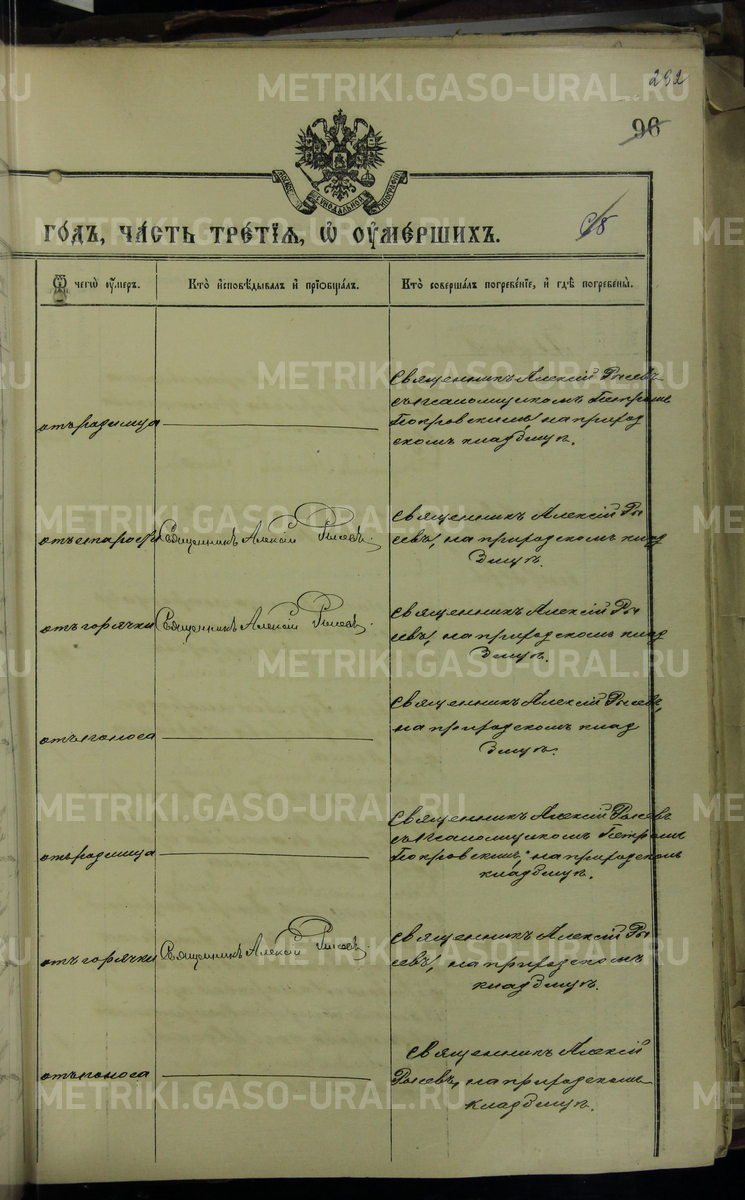 METRIKI.GASO-URAL.RU
292
96
ГОДЪ, ЧАСТЬ ТРЕТІЯ, Ѿ ОУМЕРШИХЪ.
Ѿ чегѡ оумеръ.
Кто исповѣдывалъ и пріобщалъ.
Кто совершалъ погребеніе, и гдѣ погребены.
отъ родимца
Священникъ Алексій Рысевъ
съ псаломщикомъ Петромъ
Покровскимъ, на приход
скомъ кладбищѣ.
отъ старости
Священникъ Алексій Рысевъ.
Священникъ Алексій Ры
севъ, на приходскомъ клад
бищѣ.
отъ горячки
Священникъ Алексій Рысевъ.
Священникъ Алексій Ры
севъ, на приходскомъ клад
бищѣ.
отъ поноса
Священникъ Алексій Рысевъ,
на приходскомъ клад
бищѣ.
отъ родимца
Священникъ Алексій Рысевъ
съ псаломщикомъ Петромъ
Покровскимъ, на приходскомъ
кладбищѣ.
отъ горячки
Священникъ Алексій Рысевъ.
Священникъ Алексій Ры
севъ, на приходскомъ
кладбищѣ.
отъ поноса
Священникъ Алексій
Рысевъ, на приходскомъ
кладбищѣ.